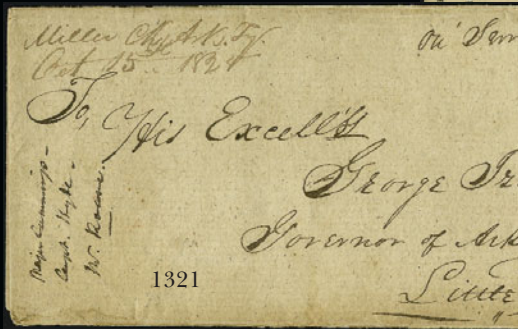 Miller Cty Ark. Ty.
Oct 15 182
On Serv
To,
His Excell'y
George Iz
Governor of Ark
Little
Major Cummings -
Capt. Hyde -
Mr.
1321